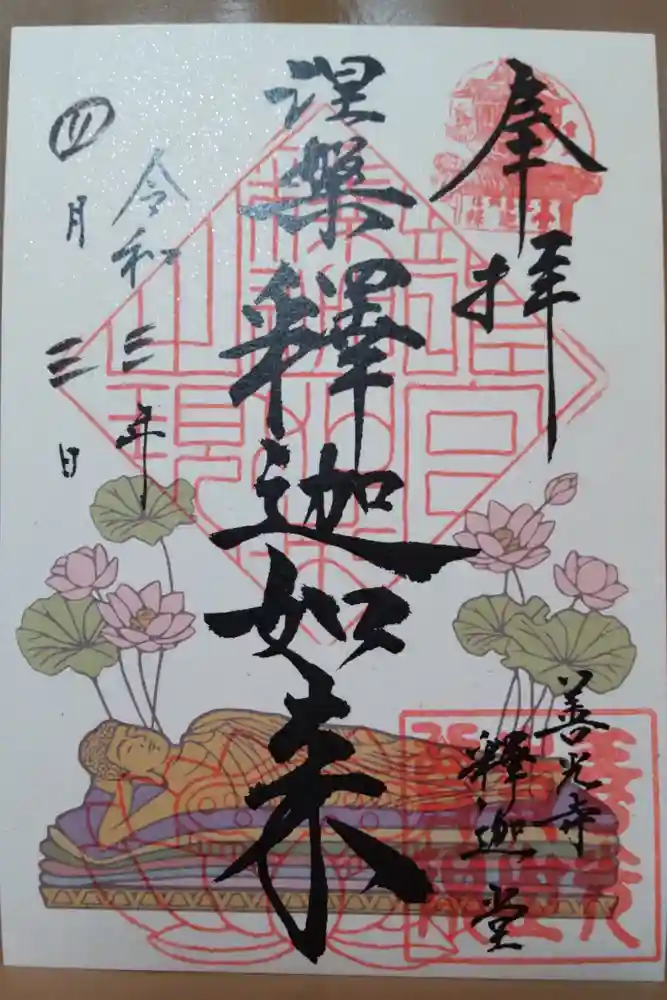 奉拝
涅槃釋迦如来
令和三年
四月三日
善光寺
釋迦堂